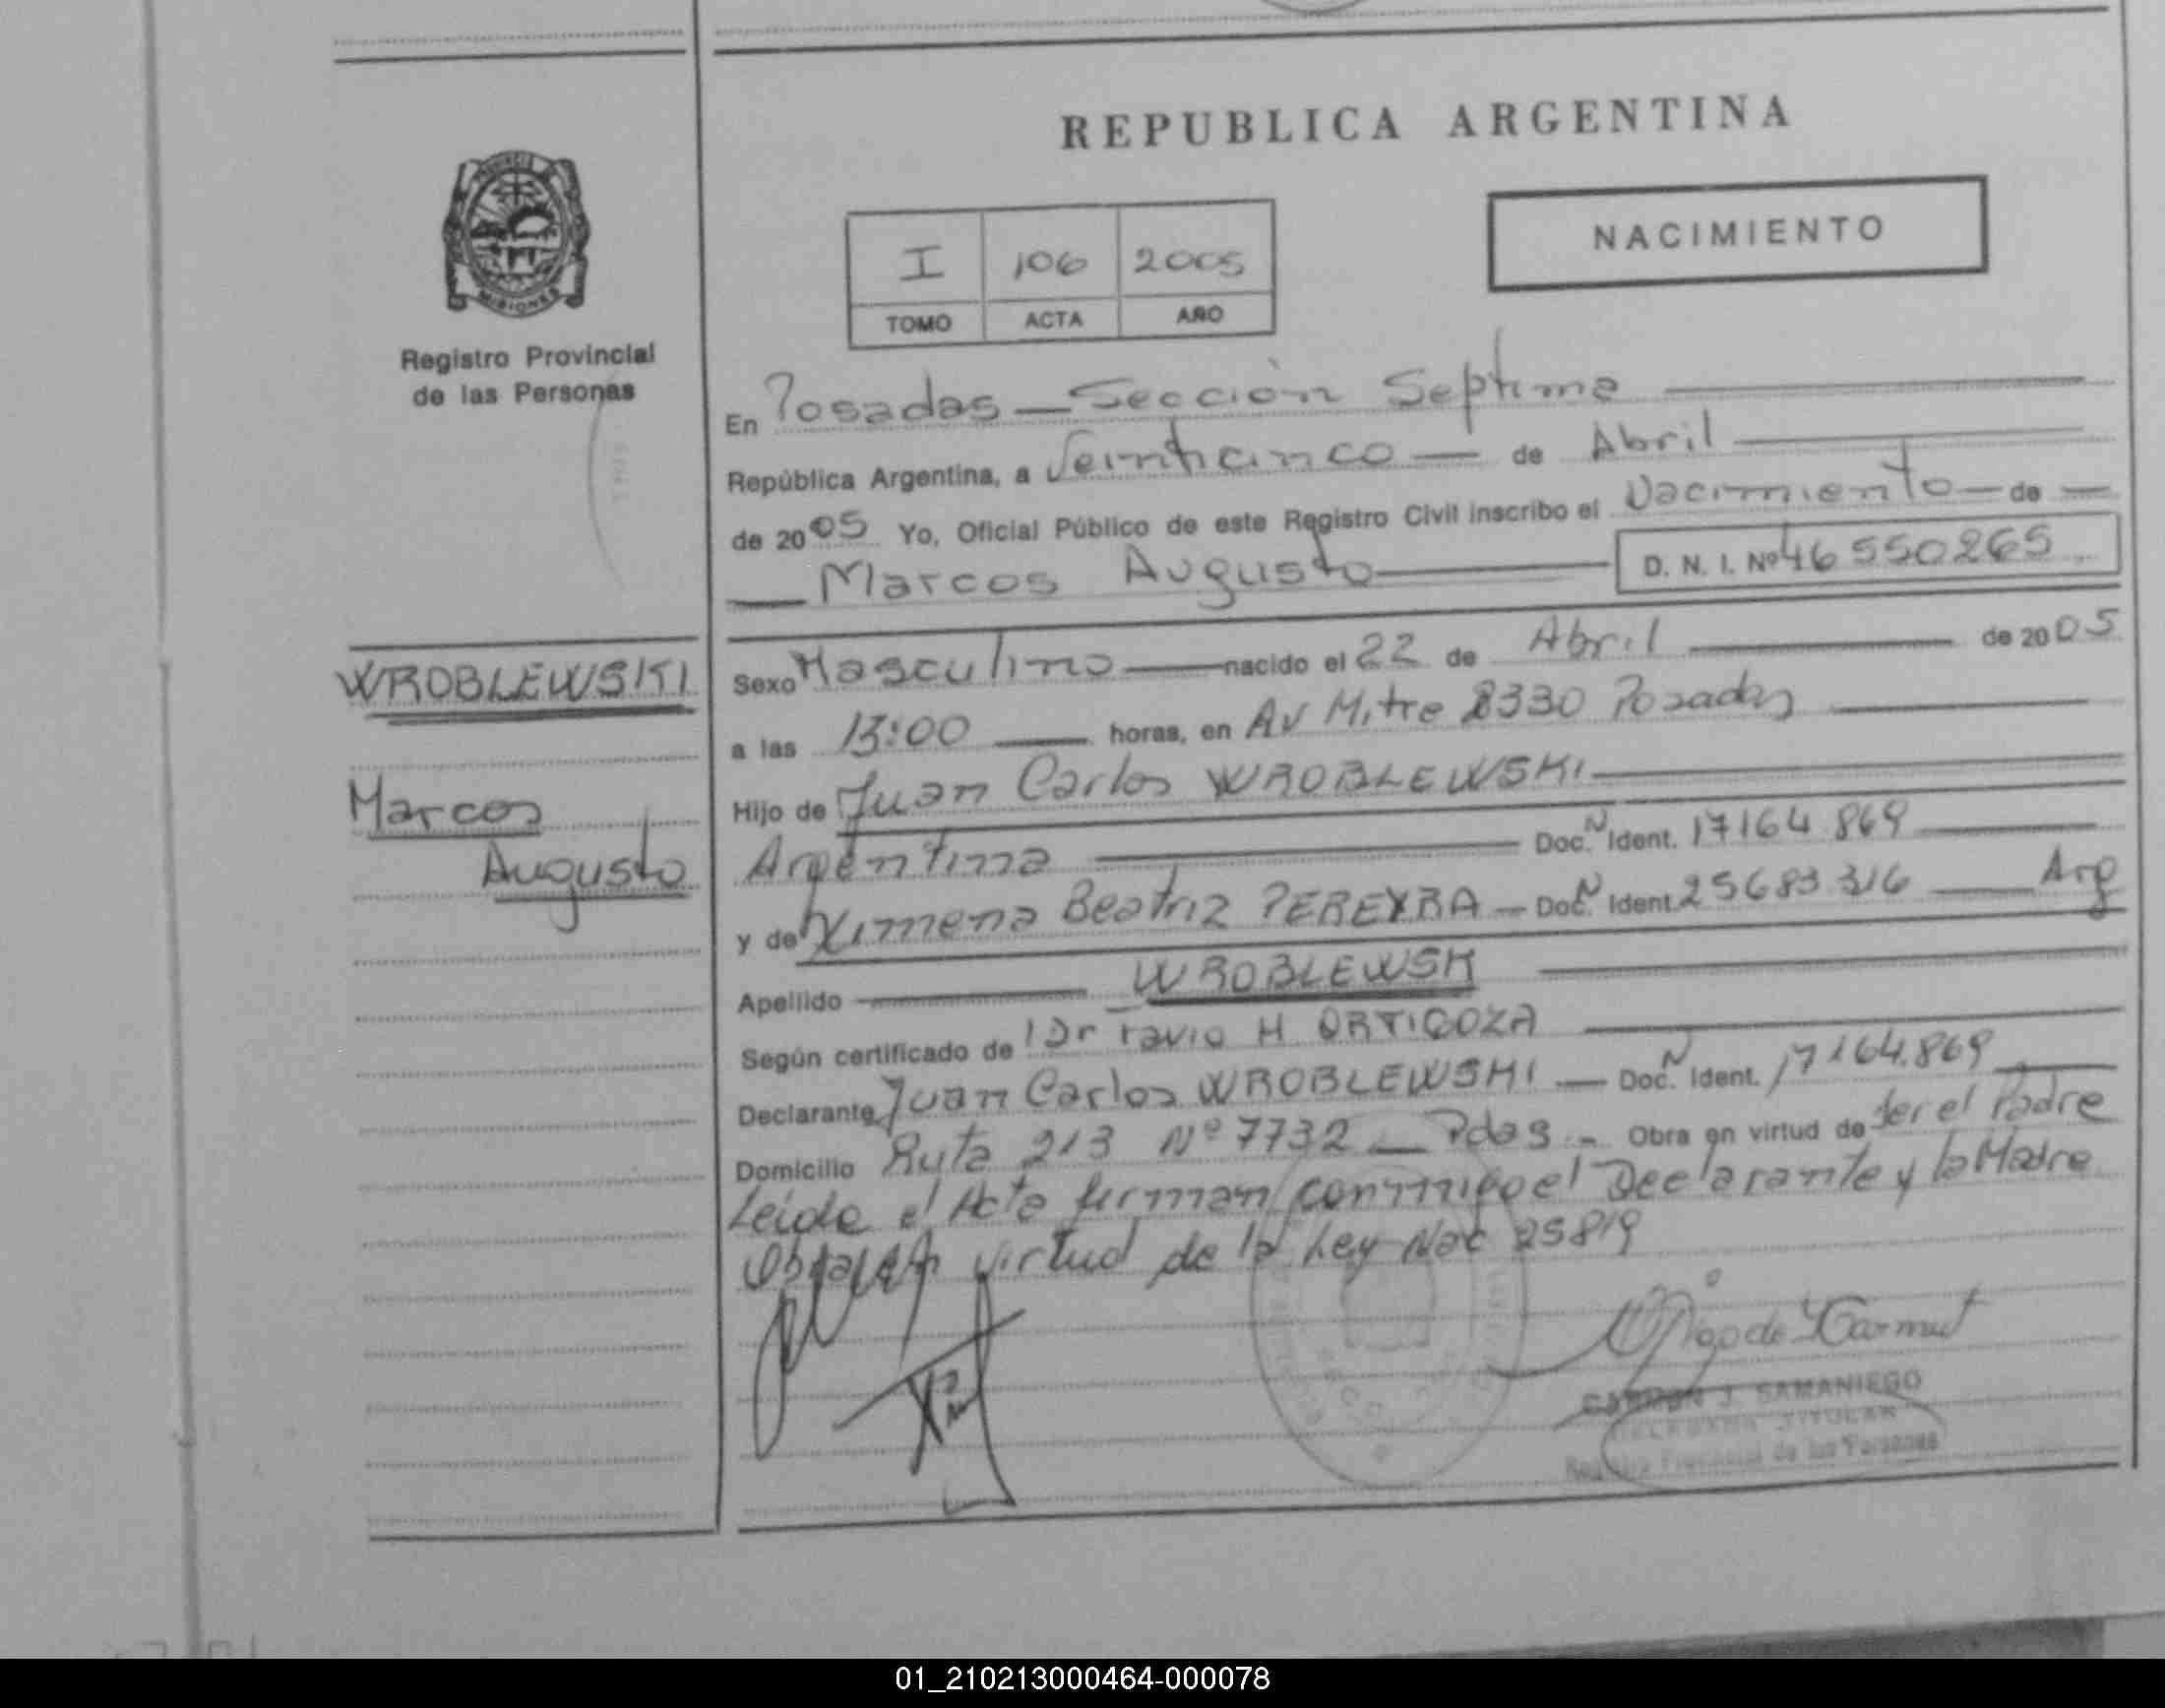 REPUBLICA ARGENTINA
NACIMIENTO
I 106 2005
TOMO ACTA AÑO
PROVINCIA DE
MISIONES
Registro Provincial
de las Personas
WROBLEWSKI
Marcos
Augusto
En Posadas — Sección Septima
República Argentina, a Veinticinco — de Abril
de 2005 Yo, Oficial Público de este Registro Civil inscribo el Nacimiento — de —
Marcos Augusto — D. N. I. Nº 46 550265
Sexo Masculino — nacido el 22 de Abril — de 2005
a las 13:00 — horas, en Av Mitre 2330 Posadas
Hijo de Juan Carlos WROBLEWSKI
Argentina — Doc. N Ident. 17164 869
y de Ximena Beatriz PEREYRA — Doc. N Ident. 25683 316 — Arg
Apellido — WROBLEWSKI
Según certificado de Dr H ORTIGOZA
Declarante Juan Carlos WROBLEWSKI — Doc. N Ident. 17164.869
Domicilio Ruta 213 Nº 7732 — Pdas.- Obra en virtud de ser el Padre
Leida el Acta firman conmigo el Declarante y la Madre
virtud de la Ley Nac 25819
J. SAMANIEGO
TITULAR
Registro Provincial de las Personas
01_210213000464-000078